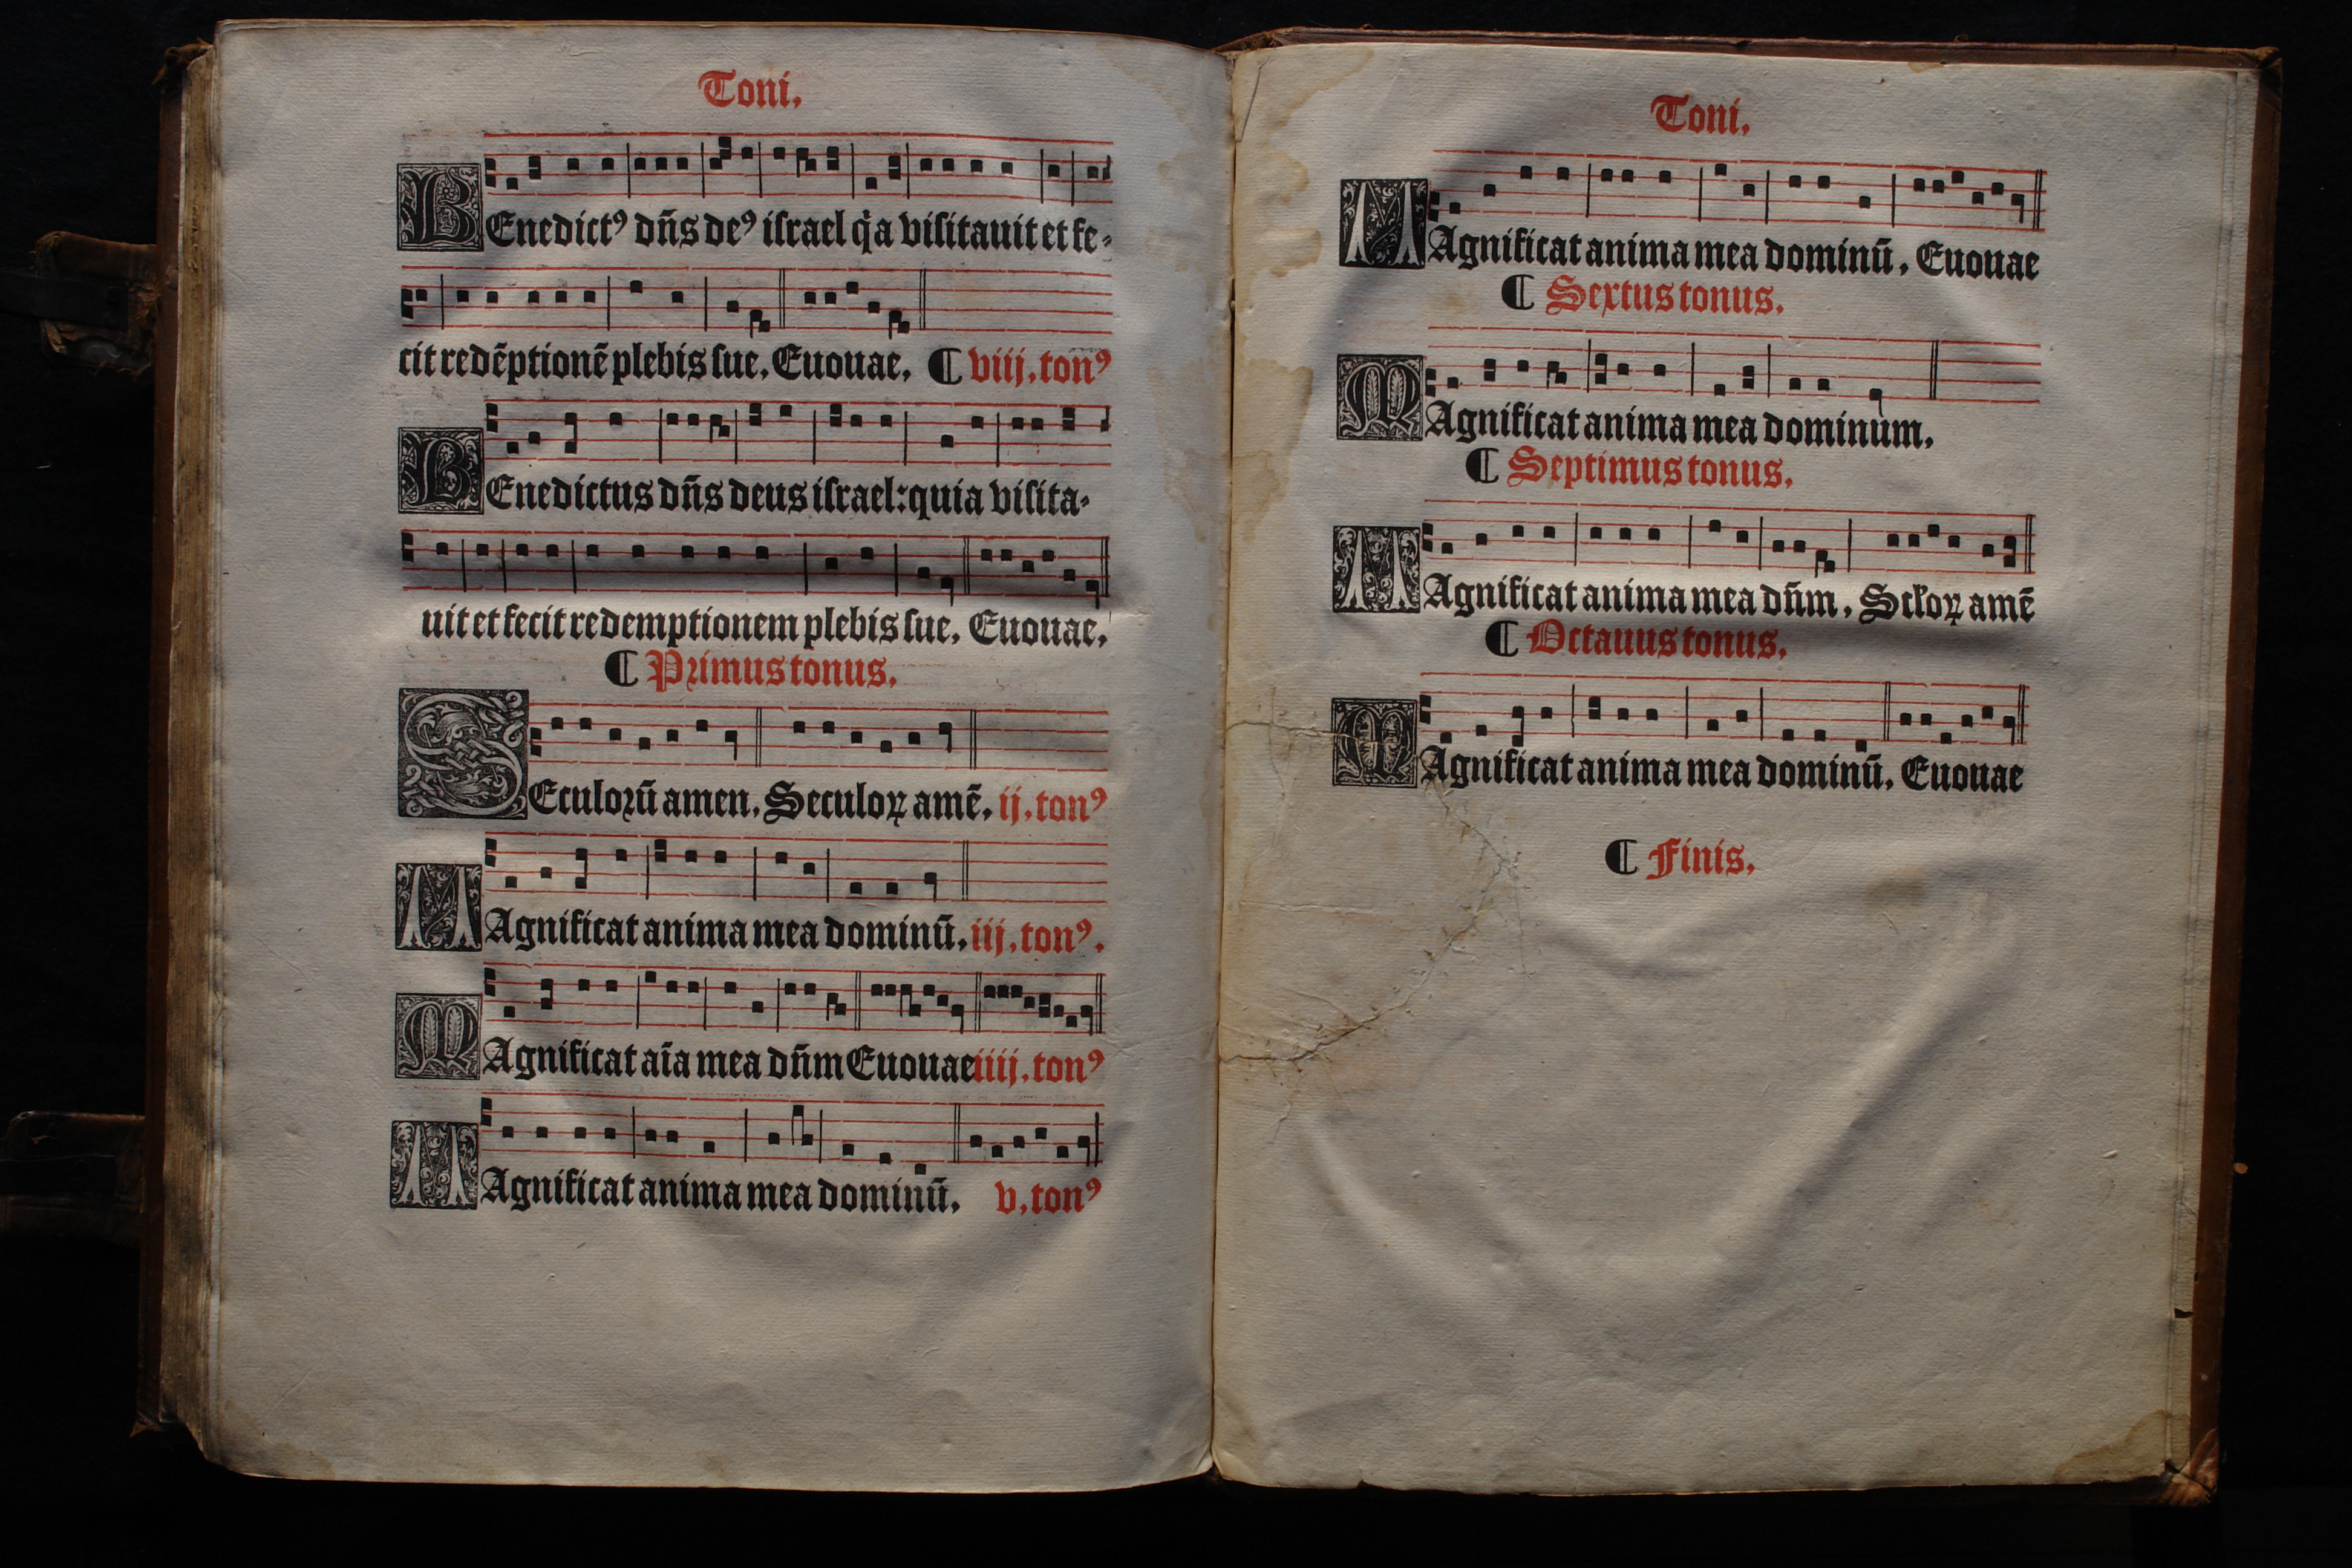 Toni.
BEnedictꝰ dñs deꝰ iſrael q̇a viſitauit et fe⸗
cit redēptionē plebis ſue. Euouae. ¶ viij. tonꝰ
BEnedictus dñs deus iſrael: quia viſita⸗
uit et fecit redemptionem plebis ſue. Euouae.
¶ Primus tonus.
SEculoꝛū amen. Seculoꝝ amē. ij. tonꝰ
MAgnificat anima mea dominū. iij. tonꝰ.
MAgnificat aīa mea dñm Euouae iiij. tonꝰ
MAgnificat anima mea dominū. v. tonꝰ
Toni.
MAgnificat anima mea dominū. Euouae
¶ Sextus tonus.
MAgnificat anima mea dominum.
¶ Septimus tonus.
MAgnificat anima mea dñm. Scło̸ꝝ amē
¶ Octauus tonus.
MAgnificat anima mea dominū. Euouae
¶ Finis.